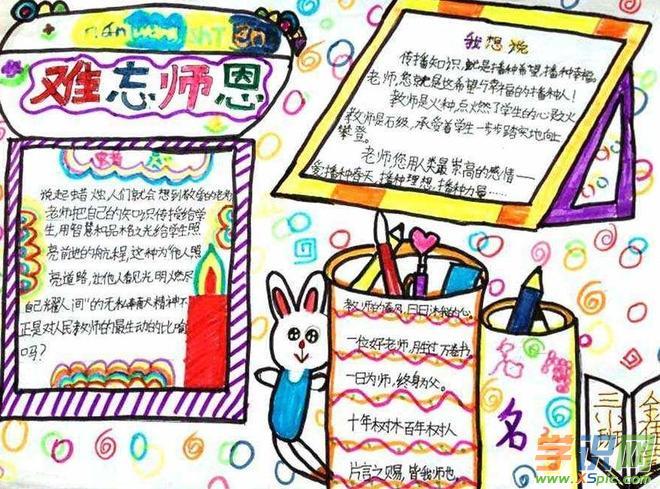 难忘师恩
说起蜡烛,人们就会想到敬爱的老师
老师把自己的知识传授给学
生,用智慧和品格之光给学生照
亮前进的航程,这种为他人照
亮道路,让他人看见光明,燃尽
自己耀人间"的无私奉献精神不
正是对人民教师的最生动的比喻
吗?
我想说
传播知识,就是播种希望,播种幸福。
老师,您就是这希望与幸福的播种人!
教师是火种,点燃了学生的心灵之火
教师是石级,承受着学生一步步踏实地向上
攀登。
老师您用人类最崇高的感情——
爱,播种春天,播种理想,播种力量……
教师的春风,日日沐我的心。
一位好老师,胜过万卷书。
一日为师,终身为父。
十年树木百年树人
片言之赐,皆我师也。
名
名
三小班
学识网
www.XSpic.com